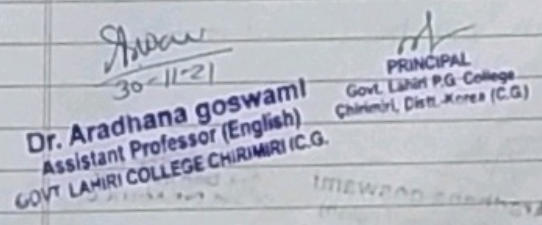 30-11-21
Dr. Aradhana goswami
Assistant Professor (English)
GOVT LAHIRI COLLEGE CHIRIMIRI (C.G.
PRINCIPAL
Govt. Lahiri P.G. College
Chirimiri, Distt.-Korea (C.G.)